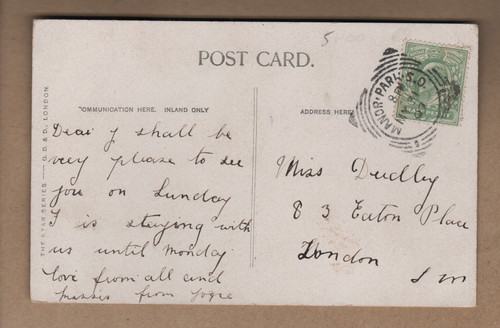 5
POST CARD.
OMMUNICATION HERE. INLAND ONLY
ADDRESS HERE
THE STAR SERIES G. D. & D., LONDON.
MANOR-PARK S.O.
Dear J shall be
very please to see
you on Sunday
I is staying with
us until Monday
love from all and
from
Miss Dudley
83 Eaton Place
London
S W